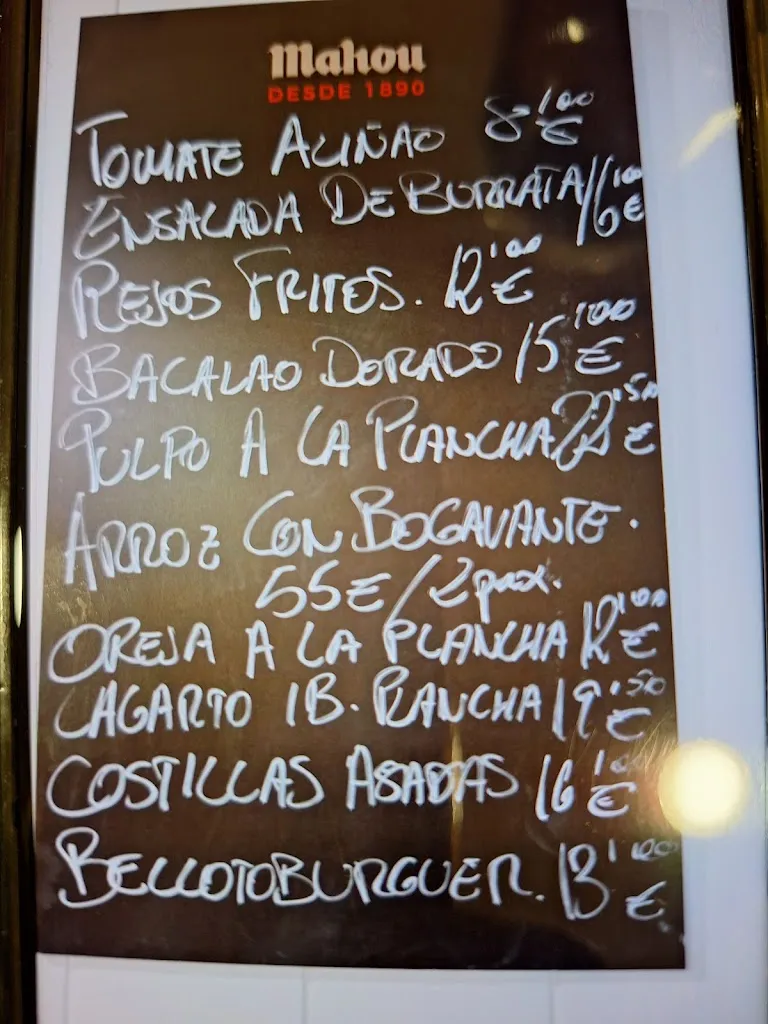 Mahou
DESDE 1890
TOMATE ALIÑAO 8'00 €
ENSALADA DE BURRATA 16'00 €
REJOS FRITOS. 12'00 €
BACALAO DORADO 15'00 €
PULPO A LA PLANCHA 22'50 €
ARROZ CON BOGAVANTE.
55€/2 pax.
OREJA A LA PLANCHA 12'00 €
LAGARTO IB. PLANCHA 19'50 €
COSTILLAS ASADAS 16'00 €
BELLOTOBURGUER. 13'00 €